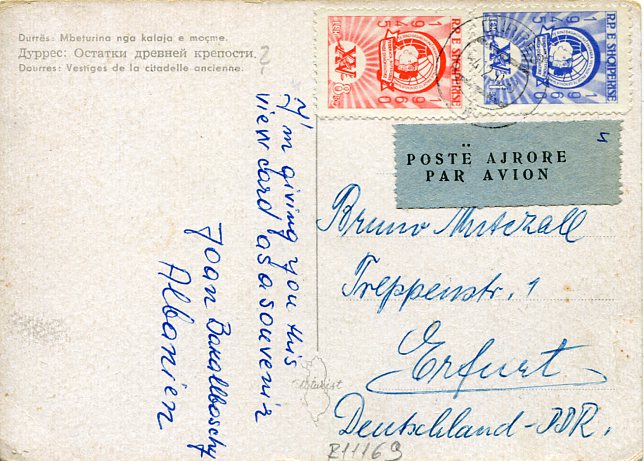 Durrës: Mbeturina nga kalaja e moçme.
Дуррес: Остатки древней крепости. ?
Dourres: Vestiges de la citadelle ancienne.
I'm giving you this
view card as a souvenir
Joan
Albanien
RP. E SHQIPËRISË
1945
1960
XV
RP. E SHQIPËRISË
1945
1960
XV
4
POSTË AJRORE
PAR AVION
Bruno
Treppenstr. 1
Erfurt
Deutschland-DDR.
Albturist
R11169